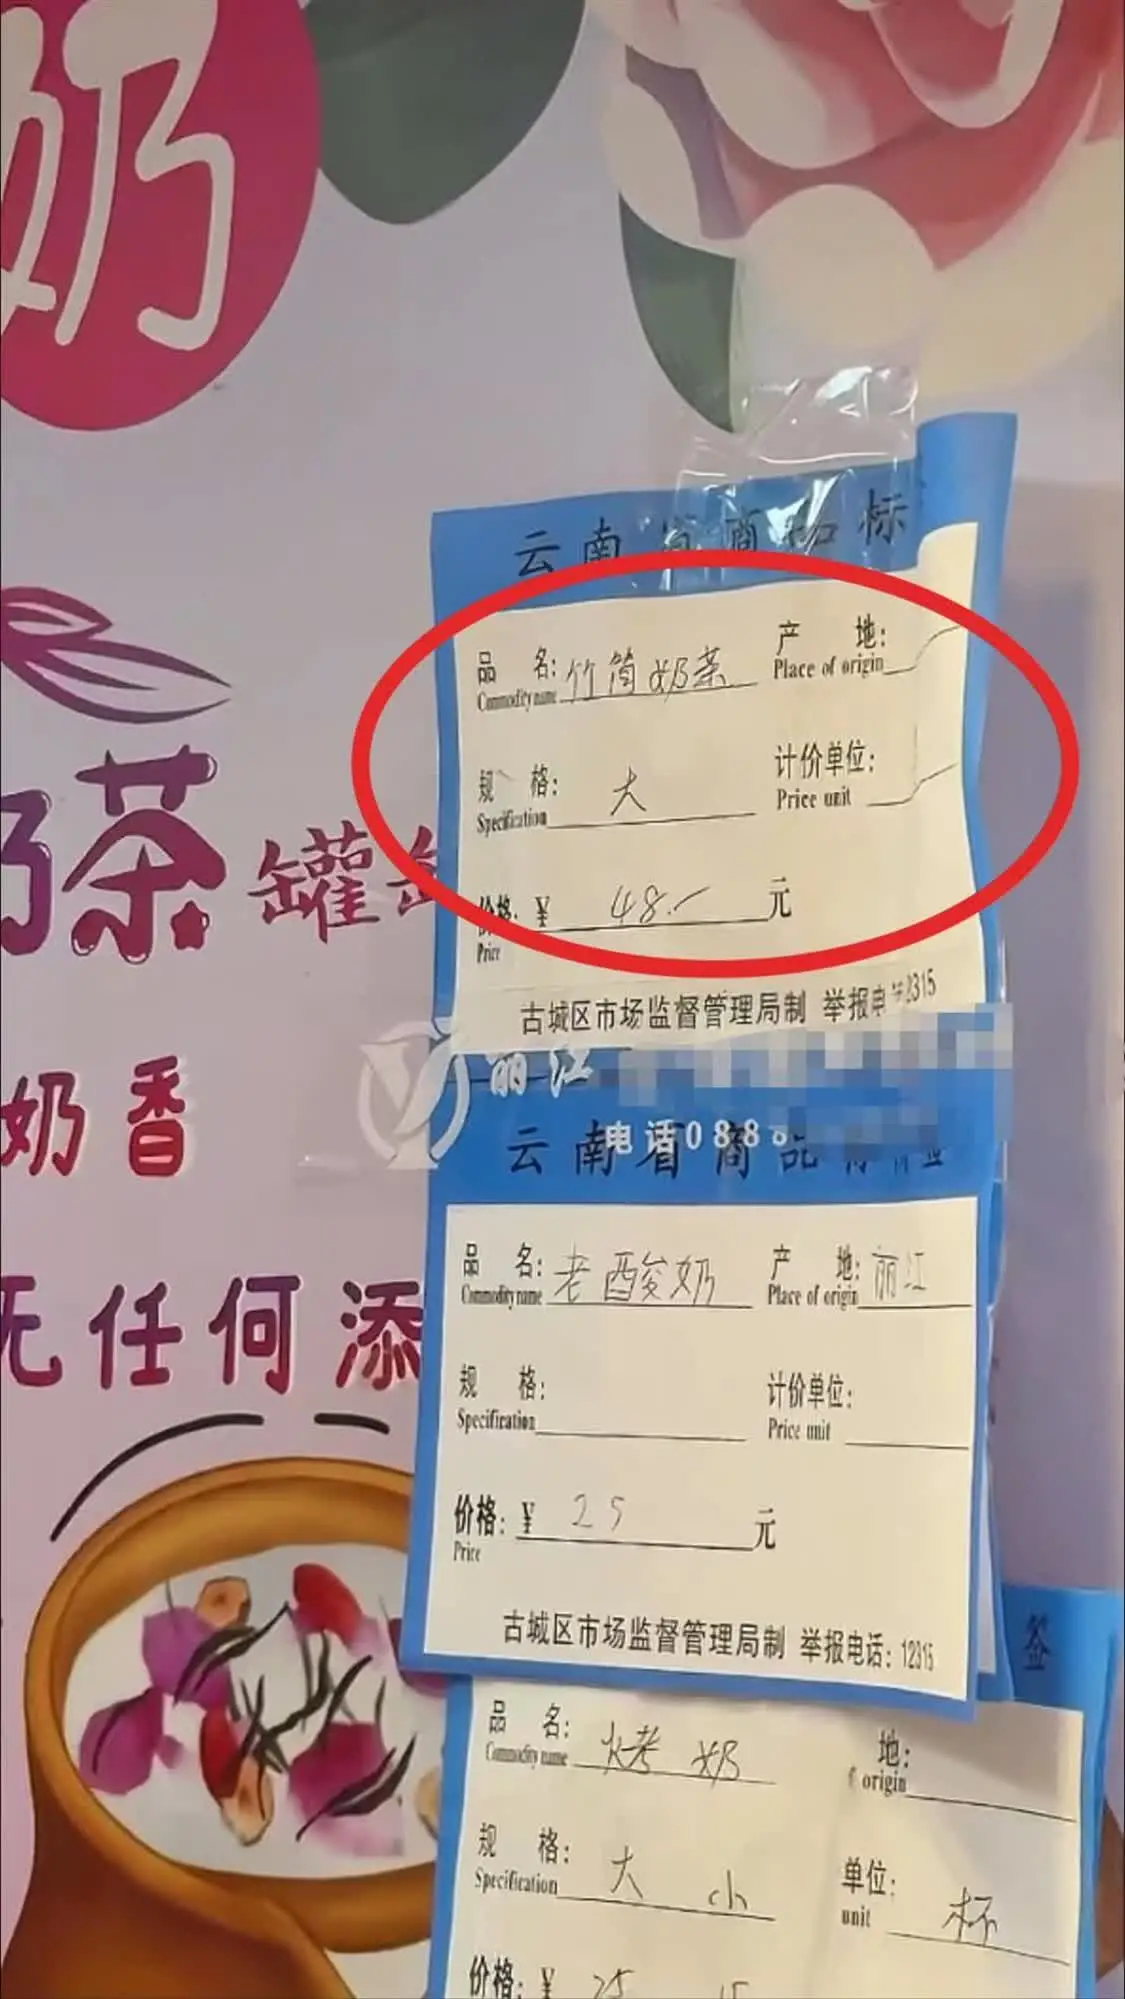 奶
云南省商品标
品 名: 竹筒奶茶 产 地:
Commodity name Place of origin
规 格: 大 计价单位:
Specification Price unit
价格: ¥ 48.- 元
Price
古城区市场监督管理局制 举报电 12315
奶茶 罐罐
丽江
电话0888
奶香
云南省商品标价签
品 名: 老酸奶 产 地: 丽江
Commodity name Place of origin
无任何添
规 格: 计价单位:
Specification Price unit
价格: ¥ 25 元
Price
古城区市场监督管理局制 举报电话: 12315
签
品 名: 烤奶 地:
Commodity name origin
规 格: 大 小 单位: 杯
Specification unit
价格: ¥ 25 15